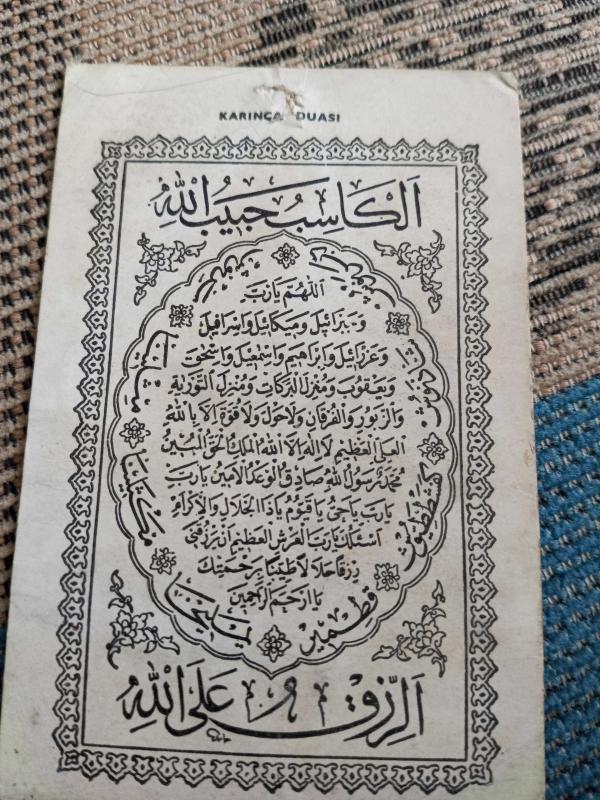 KARINCA DUASI
اَلْكَاسِبُ حَبِيبُ اللّٰهِ
اَللّٰهُمَّ يَارَبِّ
وَجَبْرَائِيلَ وَمِيكَائِيلَ وَاِسْرَافِيلَ
وَعَزْرَائِيلَ وَاِبْرَاهِيمَ وَاِسْمٰعِيلَ وَاِسْحٰقَ
وَيَعْقُوبَ وَمُنْزِلَ الْبَرَكَاتِ وَمُنْزِلَ التَّوْرٰيةِ
وَالزَّبُورِ وَالْفُرْقَانِ وَلَاحَوْلَ وَلَا قُوَّةَ اِلَّا بِاللّٰهِ
الْعَلِيِّ الْعَظِيمِ لَا اِلٰهَ اِلَّا اللّٰهُ الْمَلِكُ الْحَقُّ الْمُبِينُ
مُحَمَّدٌ رَسُولُ اللّٰهِ صَادِقُ الْوَعْدِ الْاَمِينُ يَارَبِّ
يَارَبِّ يَاحَيُّ يَاقَيُّومُ يَاذَا الْجَلَالِ وَالْاِكْرَامِ
اَسْئَلُكَ يَارَبَّ الْعَرْشِ الْعَظِيمِ اَنْ تَرْزُقَنِي
رِزْقًا حَلَالًا طَيِّبًا بِرَحْمَتِكَ
يَا اَرْحَمَ الرَّاحِمِينَ
يمليخا
مكثلينا
مثلينا
مرنوش
دبرنوش
شاذنوش
كفشططيوش
قطمير
اَلرِّزْقُ عَلَى اللّٰهِ